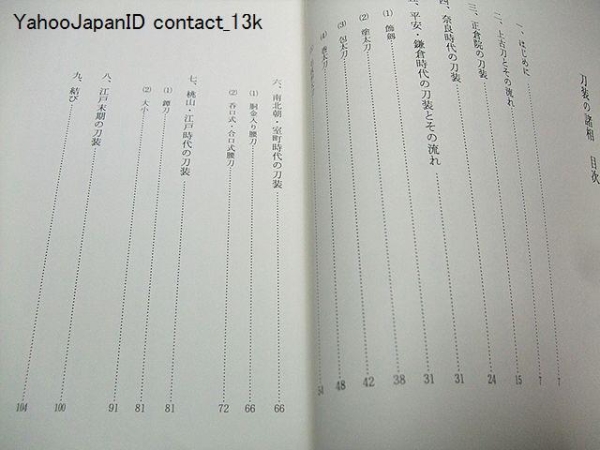 YahooJapanID contact_13k
刀装の諸相 目次
一、はじめに 7
二、上古刀とその流れ 7
三、正倉院の刀装 15
四、奈良時代の刀装 24
五、平安・鎌倉時代の刀装とその流れ 31
(1) 飾剣 31
(2) 塗太刀 38
(3) 包太刀 42
(4) 太刀 48
54
六、南北朝・室町時代の刀装 66
(1) 胴金入り腰刀 66
(2) 呑口式・合口式腰刀 72
七、桃山・江戸時代の刀装 81
(1) 鐔刀 81
(2) 大小 91
八、江戸末期の刀装 100
九、結び 104